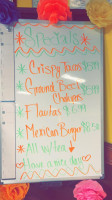 Specials
* Crispy Tacos $8.99
* Ground Beef
Chalupas
* Flautas 9.99
* Mexican Burger $8.50
* All w/tea
Have a nice day!